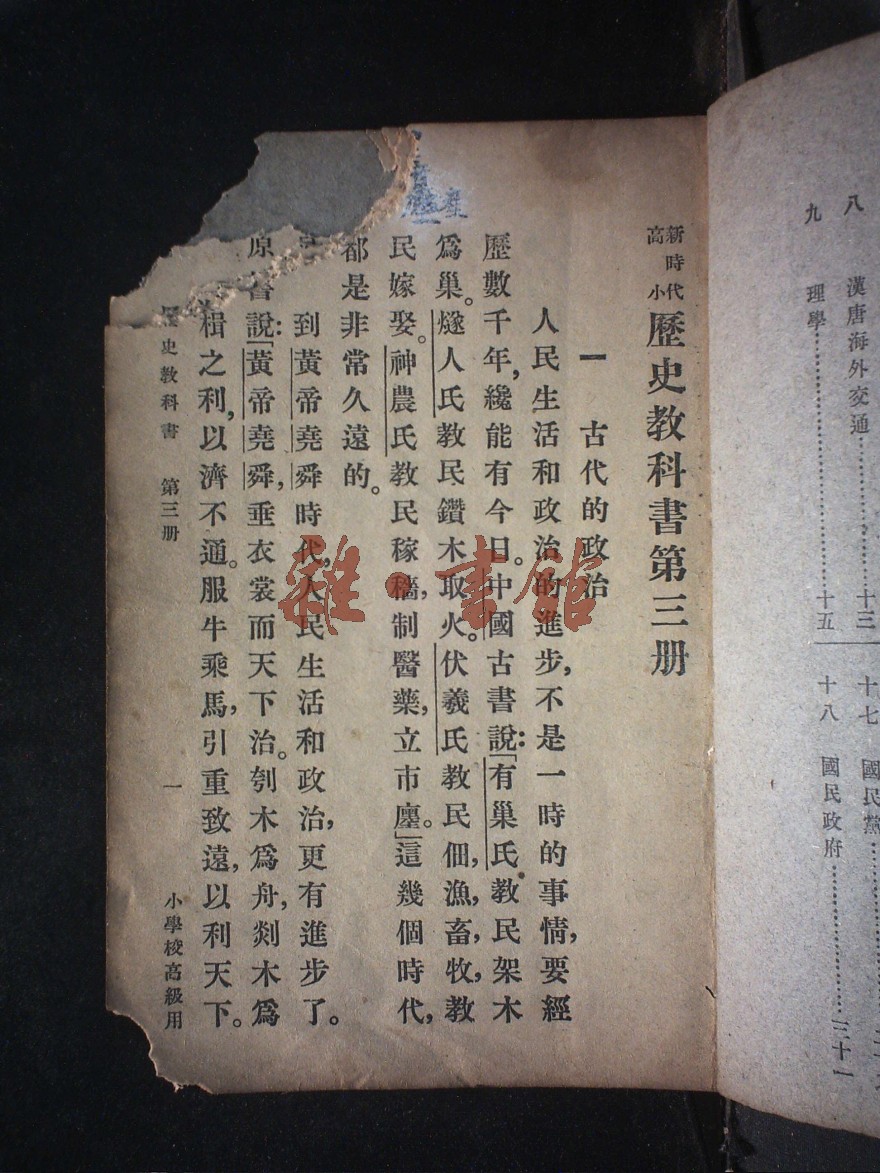 八 漢唐海外交通……十三
九 理學……十五
十七 國民黨……
十八 國民政府……三十一
新時代高小 歷史教科書第三册
一 古代的政治
人民生活和政治的進步,不是一時的事情,要經
歷數千年,纔能有今日。中國古書說:「有巢氏教民架木
爲巢。燧人氏教民鑽木取火。伏羲氏教民佃,漁,畜,牧,教
民嫁娶。神農氏教民稼穡,制醫藥,立市廛。」這幾個時代,
都是非常久遠的。
到黃帝堯舜時代,人民生活和政治,更有進步了。
說:「黃帝堯舜,垂衣裳而天下治。刳木爲舟,剡木爲
楫之利,以濟不通。服牛乘馬,引重致遠,以利天下。
歷史教科書 第三册 一 小學校高級用
雜·書館